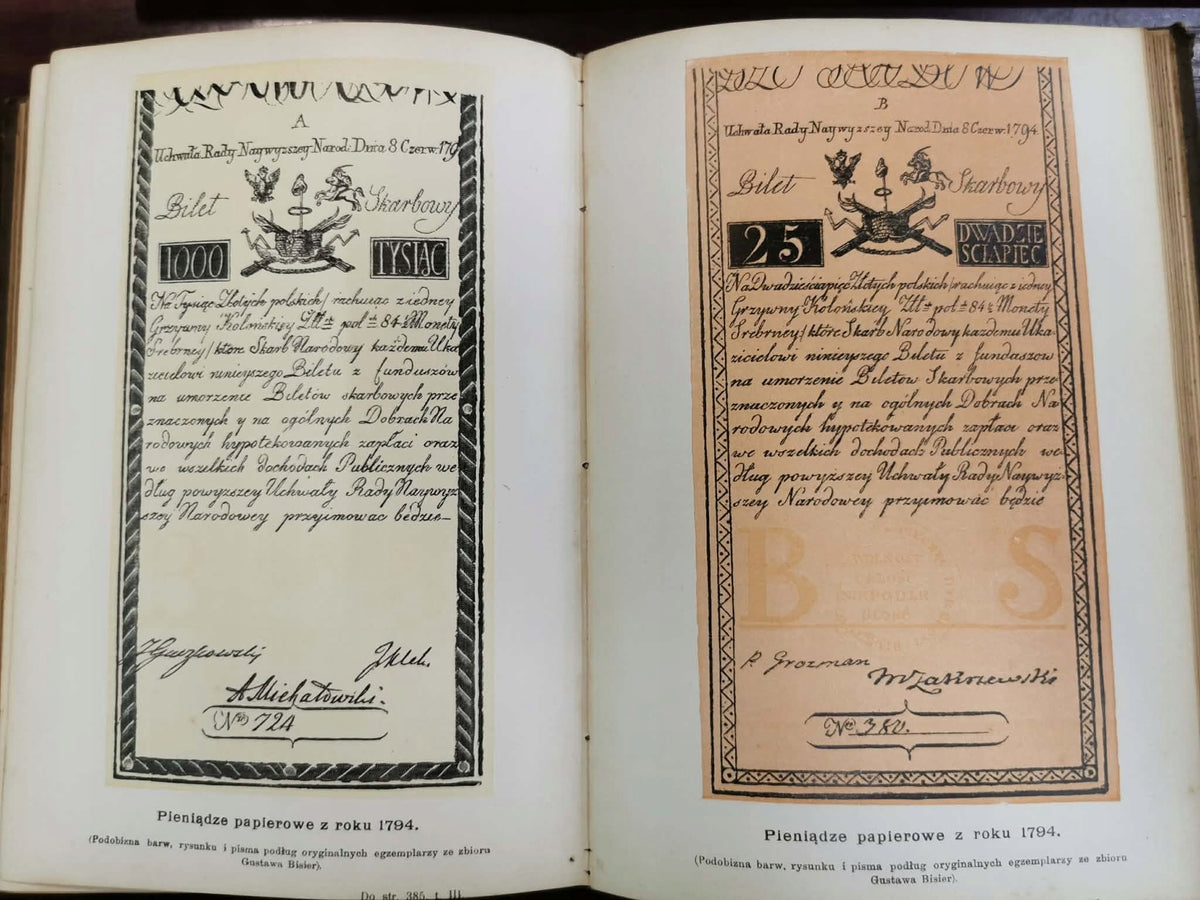 A
Uchwała Rady Naywyzszey Narod: Dnia 8 Czerw. 179
Bilet Skarbowy
1000 TYSIĄC
Na Tysiąc Złotych polskich / rachuiąc z iedney
Grzywny Kolońskiey Złt pol 84½ Monety
Srebrney / które Skarb Narodowy każdemu Uka
zicielowi ninieyszego Biletu z funduszów
na umorzenie Biletów skarbowych prze
znaczonych y na ogólnych Dobrach Na
rodowych hypotekowanych zapłaci oraz
we wszelkich dochodach Publicznych we
dług powyzszey Uchwały Rady Naywyz
szey Narodowey przyimowac będzie
A Michałowski.
No 724
Pieniądze papierowe z roku 1794.
(Podobizna barw, rysunku i pisma podług oryginalnych egzemplarzy ze zbioru
Gustawa Bisier).
Do str. 385, t. III.
B
Uchwała Rady Naywyzszey Narod. Dnia 8 Czerw. 1794.
Bilet Skarbowy
25 DWADZIE
SCIAPIEC
Na Dwadzieściapięć Złotych polskich / rachuiąc z iedney
Grzywny Kolońskiey Złt pol 84½ Monety
Srebrney / które Skarb Narodowy każdemu Uka-
zicielowi ninieyszego Biletu z funduszow
na umorzenie Biletów Skarbowych prze-
znaczonych y na ogólnych Dobrach Na-
rodowych hypotekowanych zapłaci oraz
we wszelkich dochodach Publicznych we-
dług powyzszey Uchwały Rady Naywyż-
szey Narodowey przyimować będzie
B S
WOLNOSC
CAŁOSC
NIEPODLE
GŁOSC
P. Grozman
W Zakrzewski
No 380.
Pieniądze papierowe z roku 1794.
(Podobizna barw, rysunku i pisma podług oryginalnych egzemplarzy ze zbioru
Gustawa Bisier).